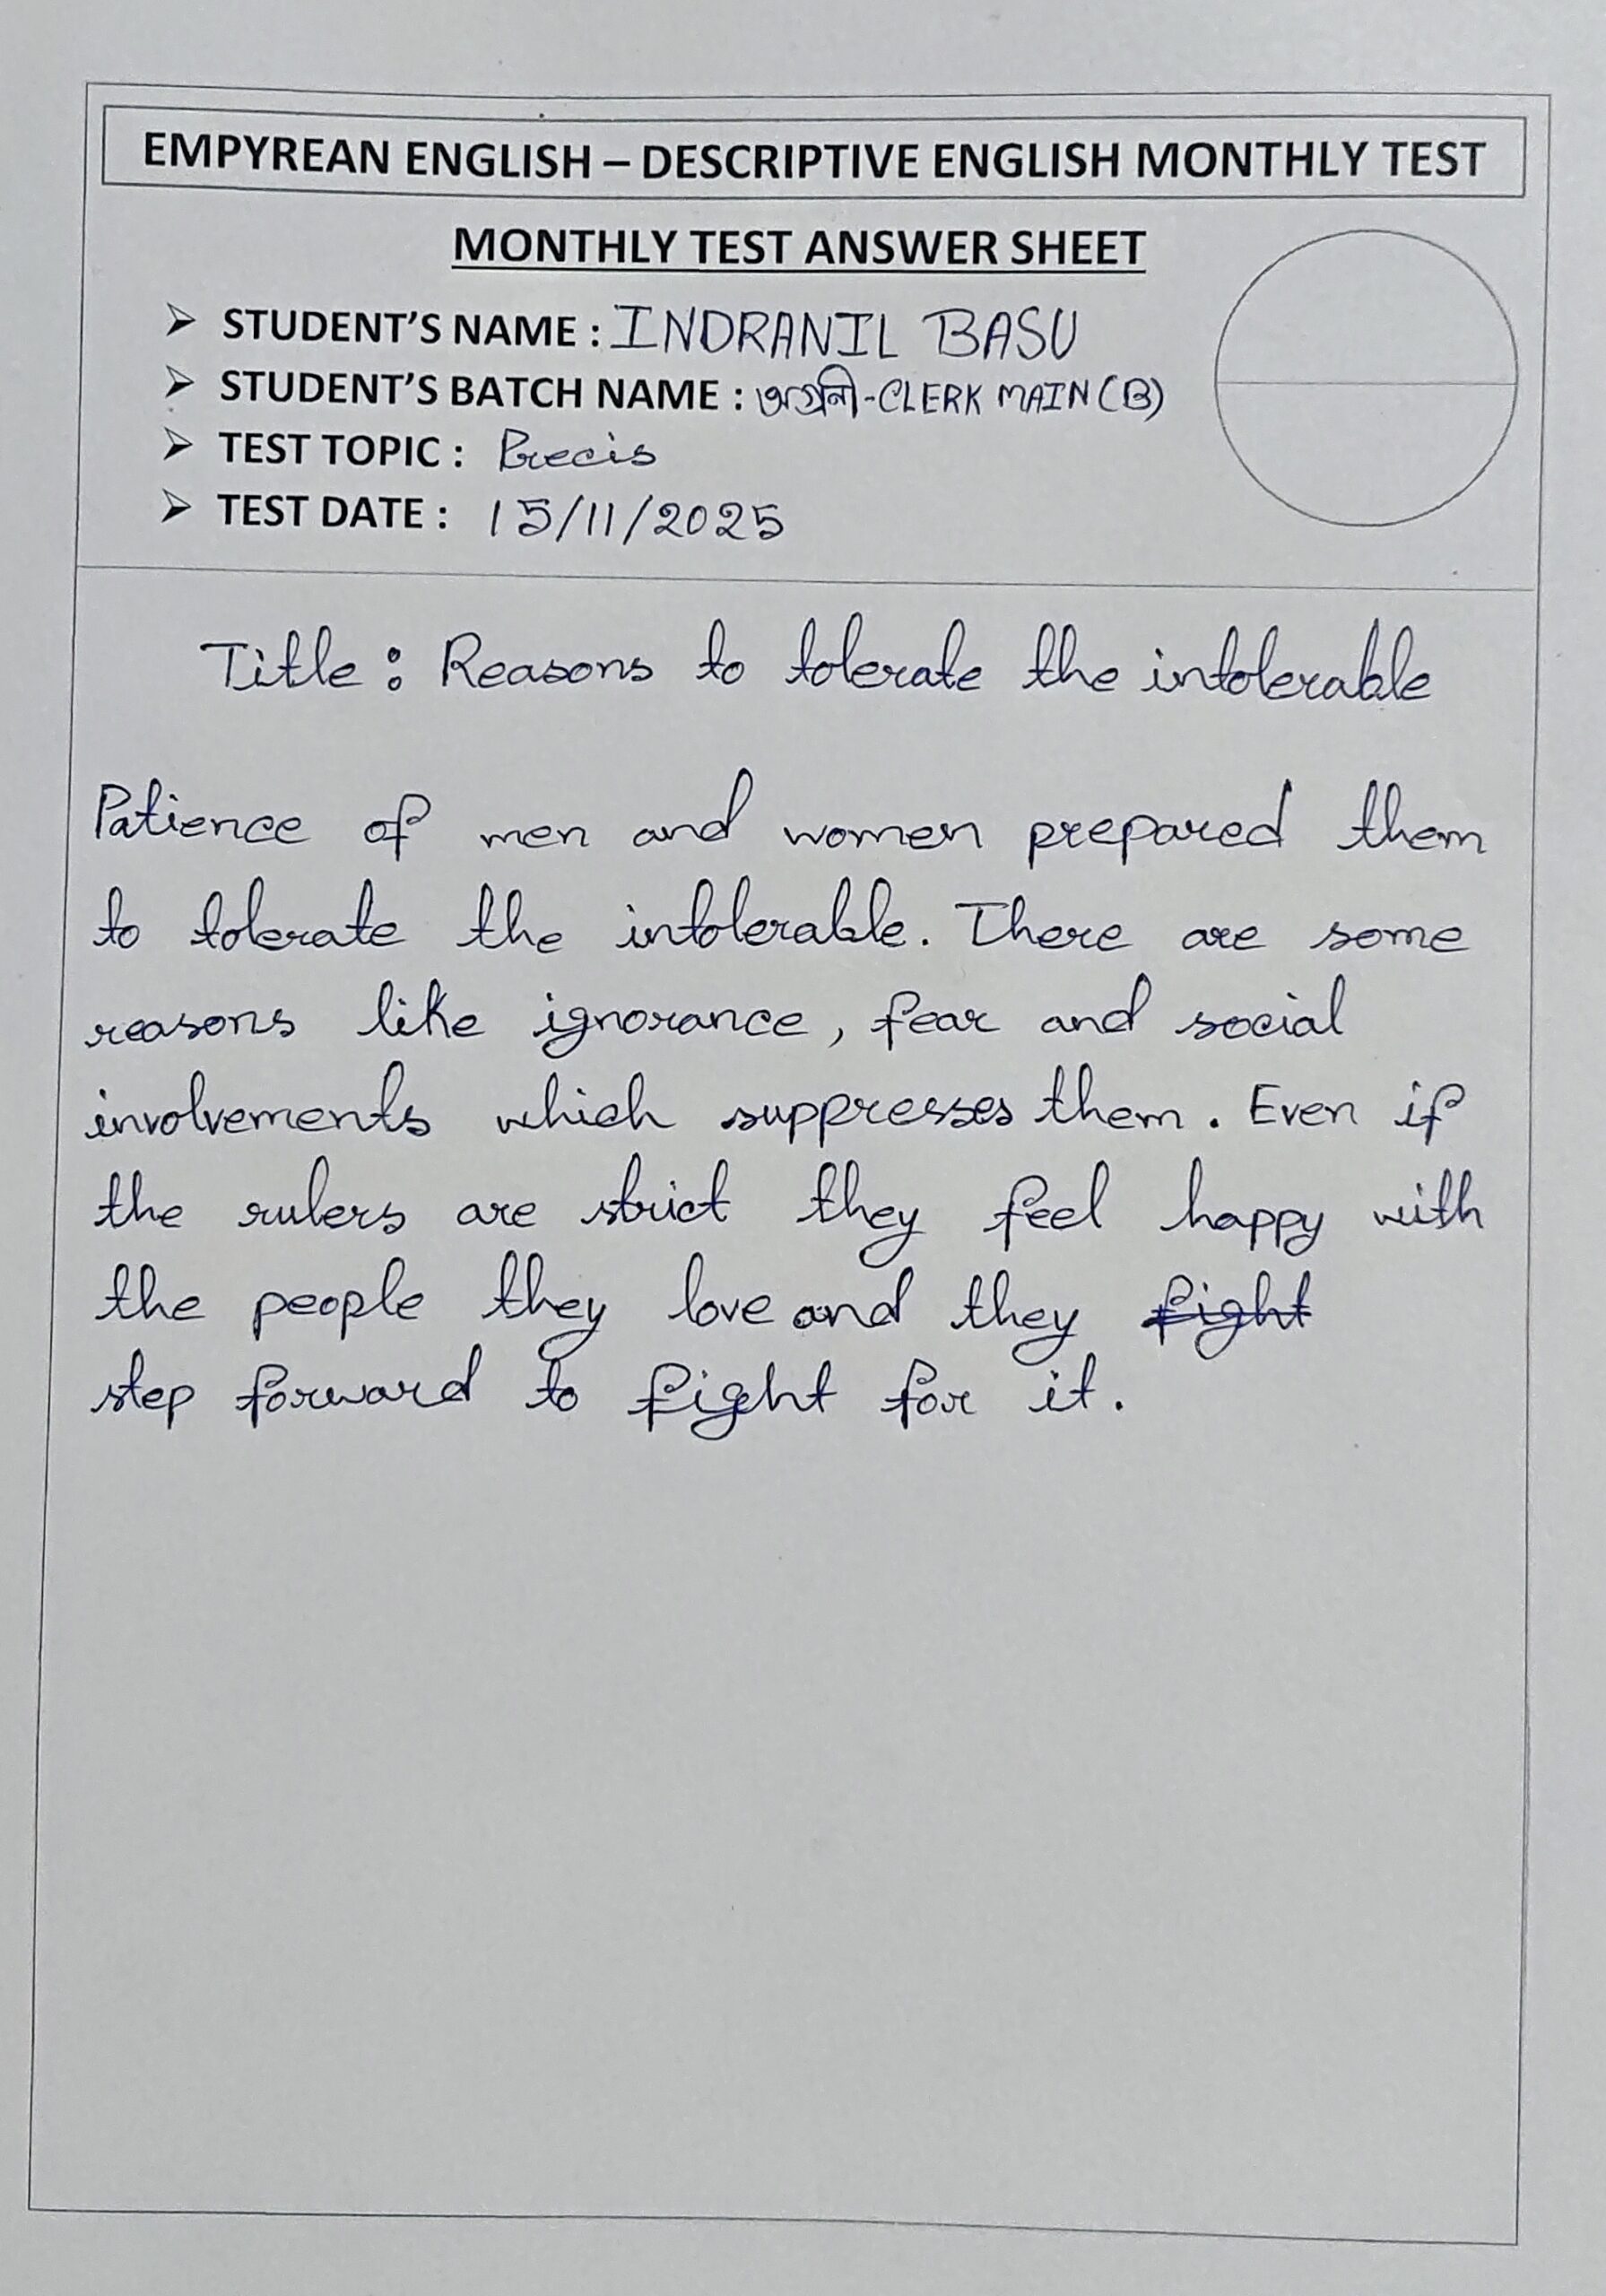 EMPYREAN ENGLISH – DESCRIPTIVE ENGLISH MONTHLY TEST
MONTHLY TEST ANSWER SHEET
➢ STUDENT'S NAME : INDRANIL BASU
➢ STUDENT'S BATCH NAME : অগ্রনী-CLERK MAIN (B)
➢ TEST TOPIC : Precis
➢ TEST DATE : 15/11/2025
Title : Reasons to tolerate the intolerable
Patience of men and women prepared them
to tolerate the intolerable. There are some
reasons like ignorance, fear and social
involvements which suppresses them. Even if
the rulers are strict they feel happy with
the people they love and they fight
step forward to fight for it.